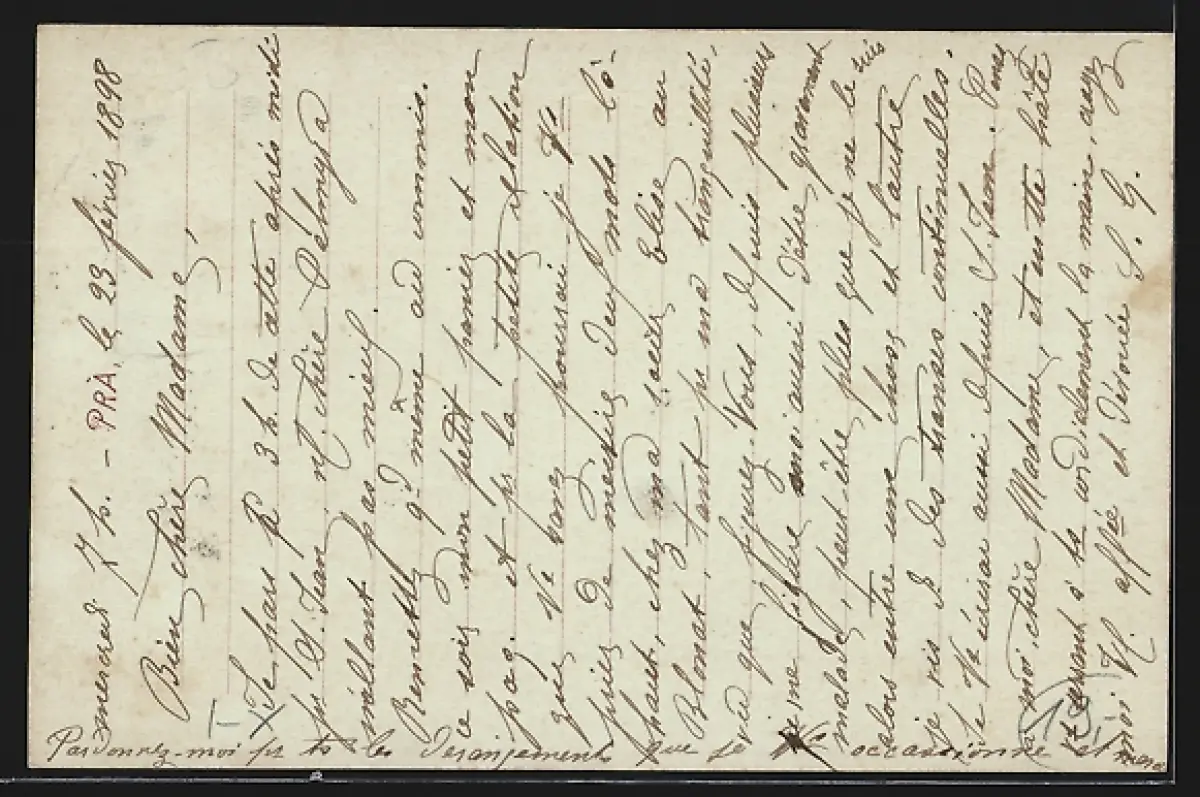 mercredi 7 h. - PRA, le 23 février 1898
Bien chère Madame,
Je pars à 3 h. de cette après midi
pr St Jean, Mr. chère
n'allant pas mieux
Remettez qd même au commis.
ce soir mon petit panier et mon
paq. et pr la petite relation
que Ve. pourrai-je Vs
prier de mettre deux mots là-
haut, chez ma sœur Elise au
Blomet, tant pr ma tranquillité,
vu que, figurez-Vous, depuis plusieurs
je me figure moi aussi d'être gravement
malade, peut-être plus que je ne le suis
alors entre une chose et l'autre
je vis ds des transes continuelles.
Je Vs écrirai aussi depuis St Jean.
moi, chère Madame, et en tte hâte
serrant à ts cordialement la main, ayez
moi Vl. affée et dévouée S. G.
Pardonnez-moi pr ts les dérangements que je Vs occasionne et merci